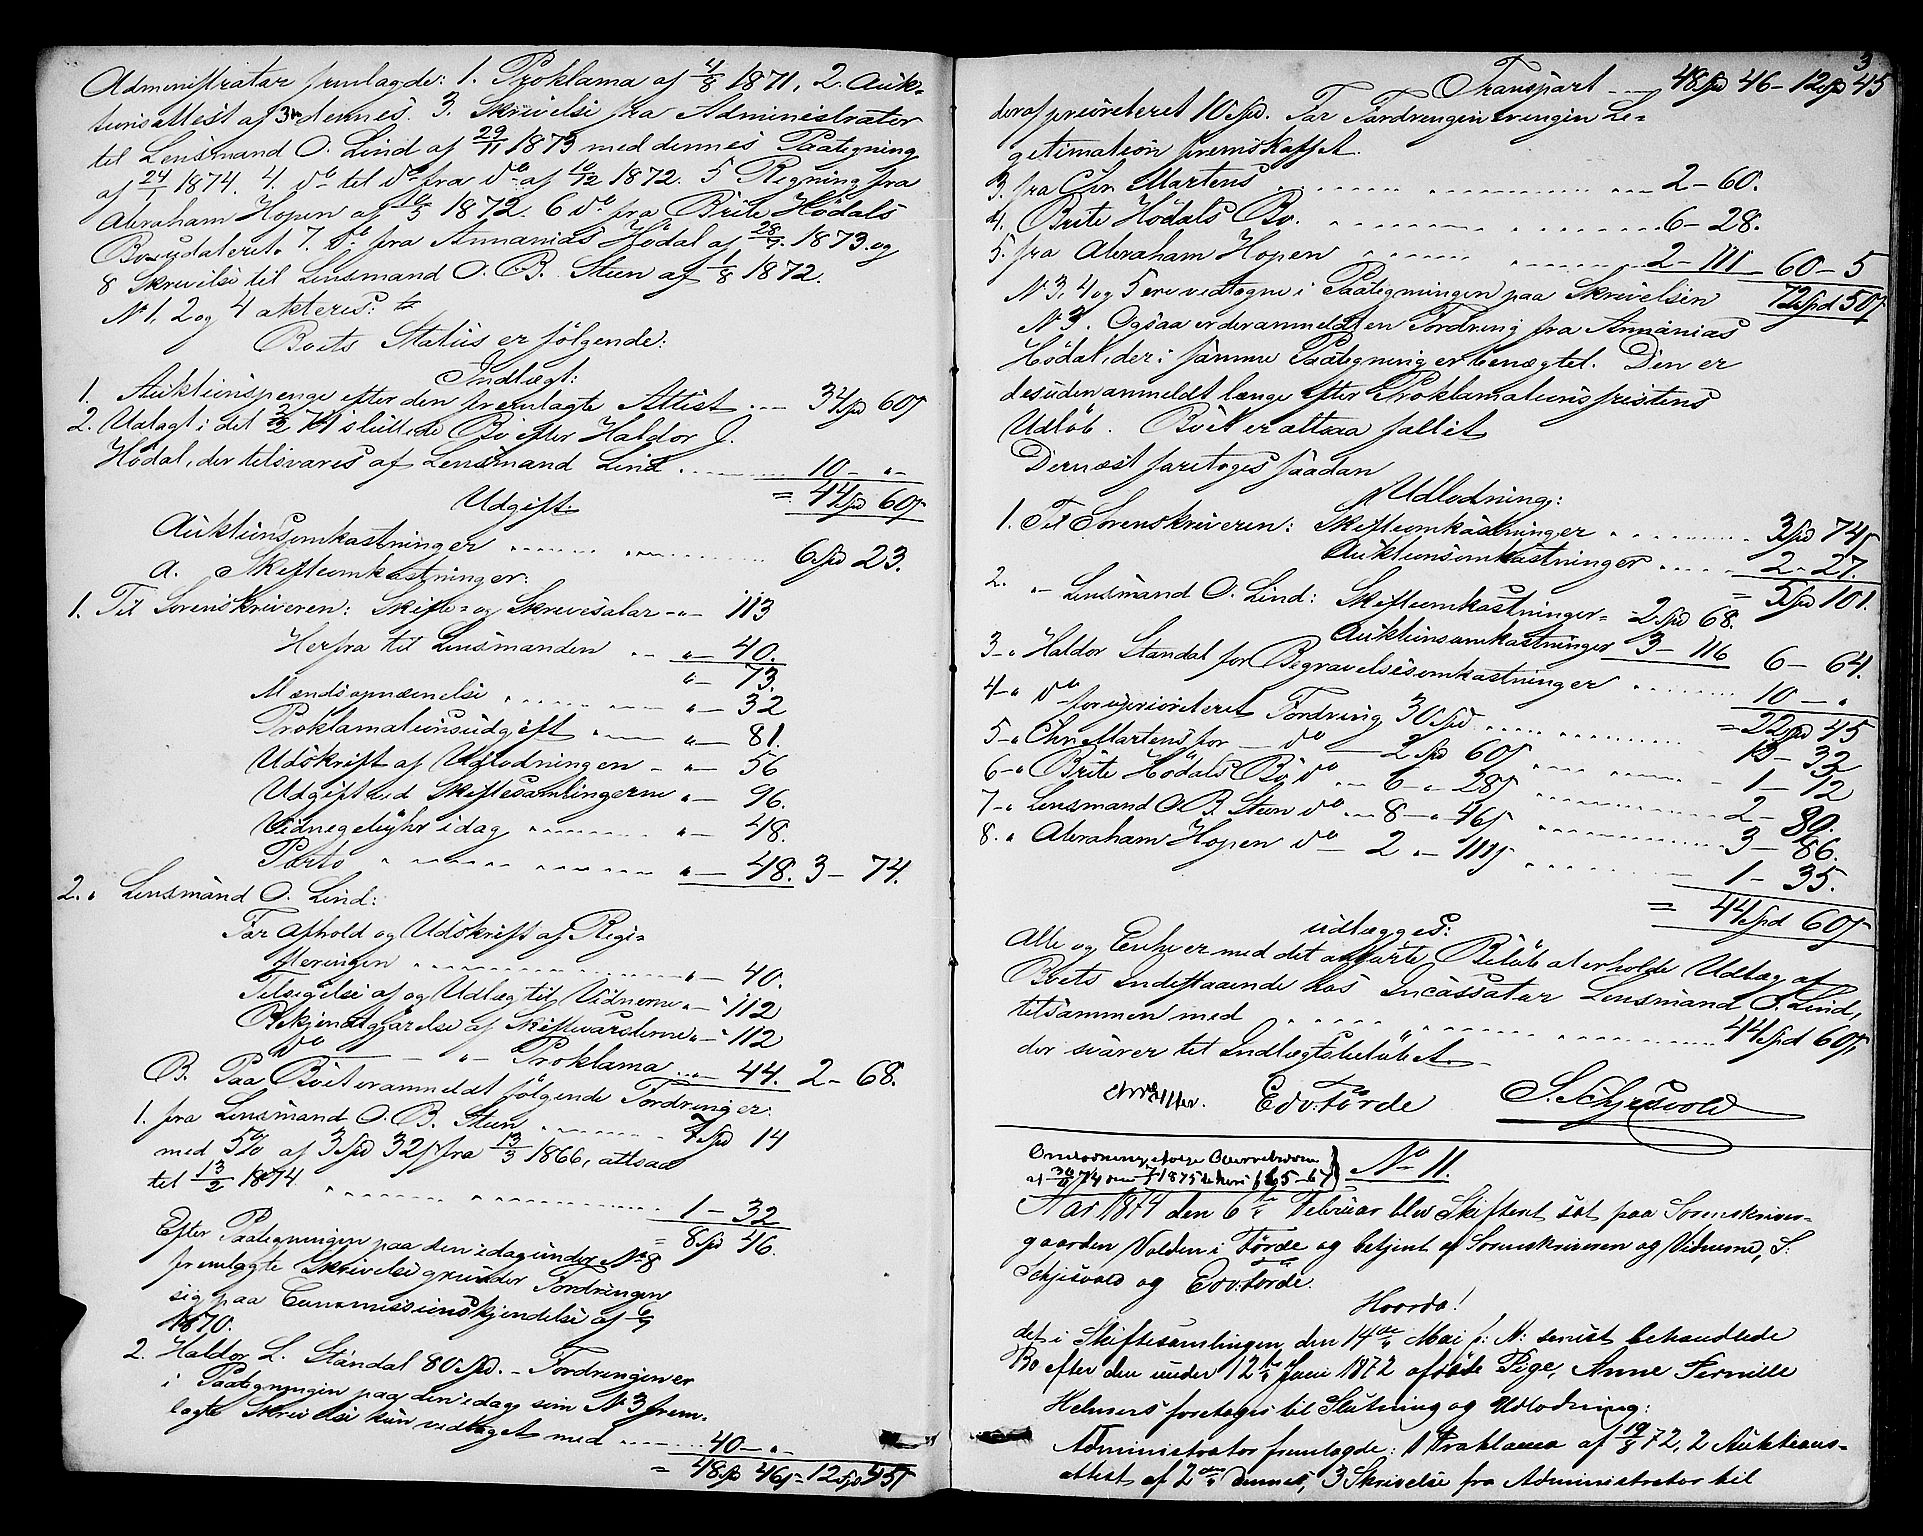 Administrator fremlagde: 1. Proklama af 4/8 1871, 2. Auk-
tionsattest af 3die dennes. 3. Skrivelse fra Administrator
til Lensmand O. Lind af 29/11 1873 med dennes Paategning
af 24/1 1874. 4. do til do fra do af 10/12 1872. 5 Regning fra
Abraham Hopen af 10/5 1872. 6 do fra Brite Hödals
Bo udateret. 7. do fra Annanias Hödal af 28/7 1873 og
8 Skrivelse til Lensmand O. B. Steen af 1/8 1872.
No 1, 2 og 4 akteres:
Boets Status er følgende:
Indtægt:
1. Auktionspenge efter den fremlagte Attest ... 34 spd 60 s
2. Udlagt i det 3/2 71 sluttede Bo efter Haldor J.
Hödal, der tilsvares af Lensmand Lind ... 10 - " -
= 44 spd 60 s
Udgift:
Auktionsomkostninger ... 6 spd 23.
a. Skifteomkostninger:
1. Til Sorenskriveren: Skifte- og Skrivesalar - " - 113
Herfra til Lensmanden .. " - 40.
" - 73.
Mændsopnævnelse ... " - 32
Proklamationsudgift ... " - 81.
Udskrift af Udlodningen - " - 56
Udgift ved Skiftesamlingerne " - 96.
Vidnegebyhr idag ... " - 48.
Porto ... " - 48. 3 - 74.
2. " Lensmand O. Lind:
For Afhold og Udskrift af Regi-
steringen ... " - 40.
Tilsigelse af og Udlæg til Vidnerne " - 112
Bekjendtgjørelse af Skiftevarslerne " - 112
do - " - Proklama ... " - 44. 2 - 68.
B. Paa Boet er anmeldt følgende Fordringer:
1. fra Lensmand O. B. Steen ... 7 spd 14
med 5% af 3 spd 32 s fra 13/3 1866, altsaa
til 13/2 1874 ... 1 - 32
= 8 spd 46.
Efter Paategningen paa den idag under No 8
fremlagte Skrivelse grunder Fordringen
sig paa Commissionskjendelse af 6/9
1870.
2. Haldor L. Standal 80 spd. - Fordringen er
i Paategningen paa den idag som No 3 frem-
lagte Skrivelse kun vedtaget med ... 40 - " -
= 48 spd 46 s - 12 spd 45 s
3
Transport ... 48 spd 46 - 12 spd 45
deraf prioriteret 10 spd. For Fordringen er ingen Le-
gitimation fremskaffet.
3. fra Chr. Martens ... 2 - 60.
4. Brite Hödals Bo. ... 6 - 28.
5. fra Abraham Hopen ... 2 - 111 60 - 5
No 3, 4 og 5 ere vedtagne i Paategningen paa Skrivelsen 72 spd 50 s
No 3. Ogsaa er der anmeldt en Fordring fra Annanias
Hödal, der i samme Paategning er benægtet. Den er
desuden anmeldt længe efter Proklamationsfristens
Udløb. Boet er altsaa fallit
Dernæst foretoges saadan
Udlodning:
1. Til Sorenskriveren: Skifteomkostninger ... 3 spd 74 s
Auktionsomkostninger ... 2 - 27.
= 5 spd 101.
2. " - Lensmand O. Lind: Skifteomkostninger = 2 spd 68.
Auktionsomkostninger 3 - 116 6 - 64.
3 - " Haldor Standal for Begravelsesomkostninger ... 10 - "
= 22 spd 45
4 - " do for uprioriteret Fordring 30 spd ... 13 - 32
5 - " Chr. Martens for - do - 2 spd 60 s ... 1 - 12
6 - " Brite Hödals Bo do ... 6 - " 28 s ... 2 - 89.
7 - " Lensmand O. B. Steen do ... 8 - " 46 s ... 3 - 86.
8. " Abraham Hopen do - 2 " - 111 s ... 1 - 35.
= 44 spd 60 s
udlægges:
Alle og Enhver med det anførte Beløb at erholde Udlæg af
Boets Indestaaende hos Incassator Lensmand O. Lind,
tilsammen med ... 44 spd 60 s,
der svarer til Indtægtsbeløbet. -
Edv. Förde S. Schjesvold
Omlodning ifølge
af 30/11 74 1875 65-67
No 11.
Aar 1874 den 6te Februar blev Skifteret sat paa Sorenskriver-
gaarden Valden i Förde og betjent af Sorenskriveren og Vidnerne, S.
Schjesvold og Edv. Förde.
Hvorda!
det i Skiftesamlingen den 14de Mai f: A: senest behandlede
Bo efter den under 12te Juni 1872 afdøde Pige, Anne Pernille
Helmers foretoges til Slutning og Udlodning:
Administrator fremlagde: 1 Proklama af 19/8 72, 2 Auktions-
attest af 2den dennes, 3 Skrivelse fra Administrator til